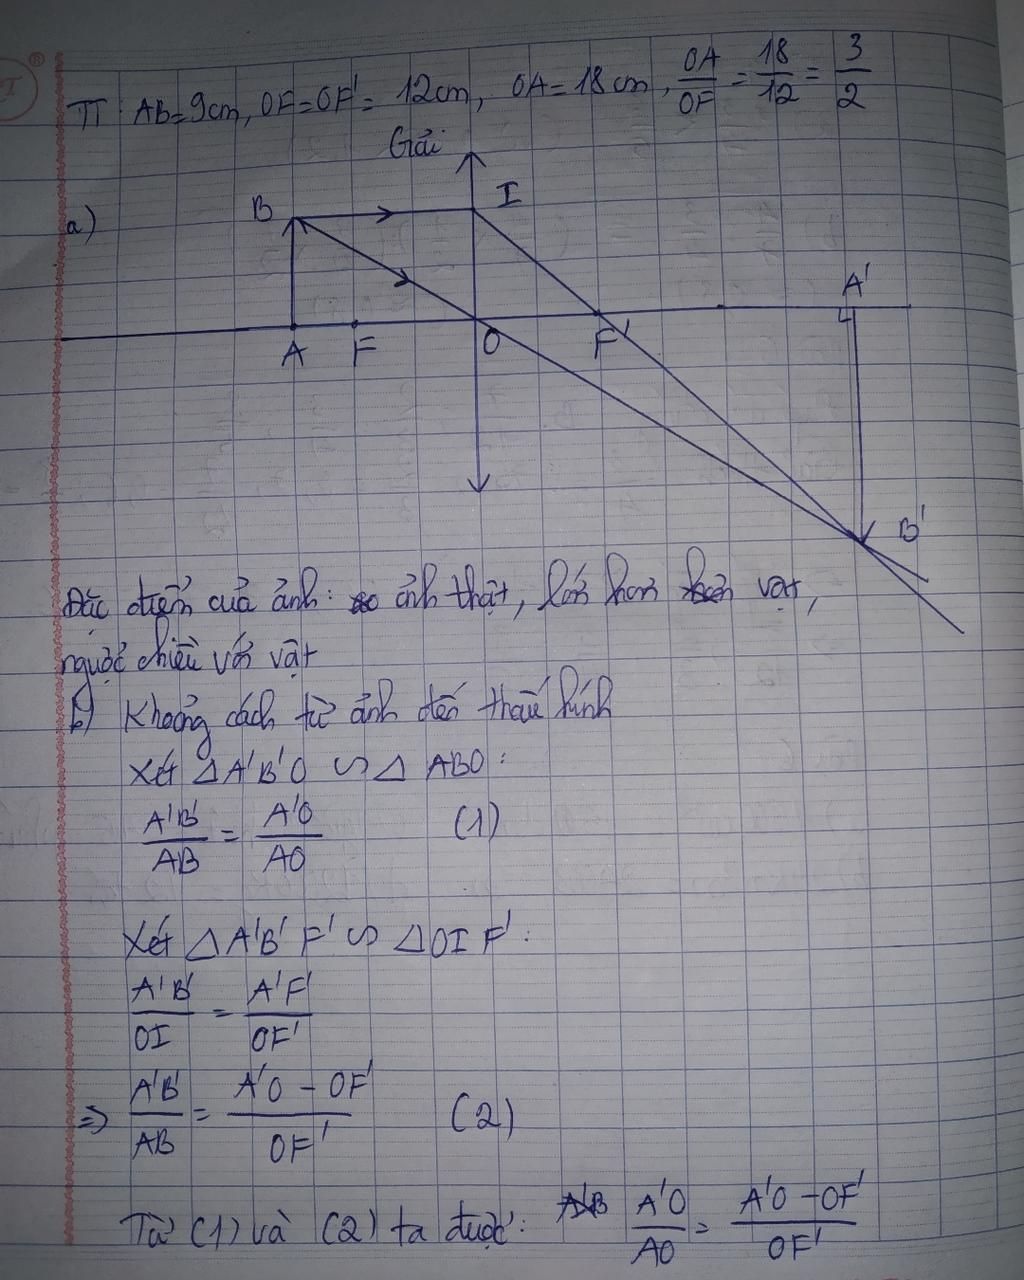 TT: AB=9cm, OF=OF'= 12cm, OA=18cm, OA/OF = 18/12 = 3/2
Giải
a)
B I
A'
A F O F'
B'
Đặc điểm của ảnh: ảnh thật, lớn hơn vật,
ngược chiều với vật
b) Khoảng cách từ ảnh đến thấu kính
Xét △A'B'O ∽ △ ABO:
A'B'/AB = A'O/AO (1)
Xét △A'B'F' ∽ △OIF':
A'B'/OI = A'F'/OF'
=> A'B'/AB = A'O - OF'/OF' (2)
Từ (1) và (2) ta được: A'O/AO = A'O - OF'/OF'